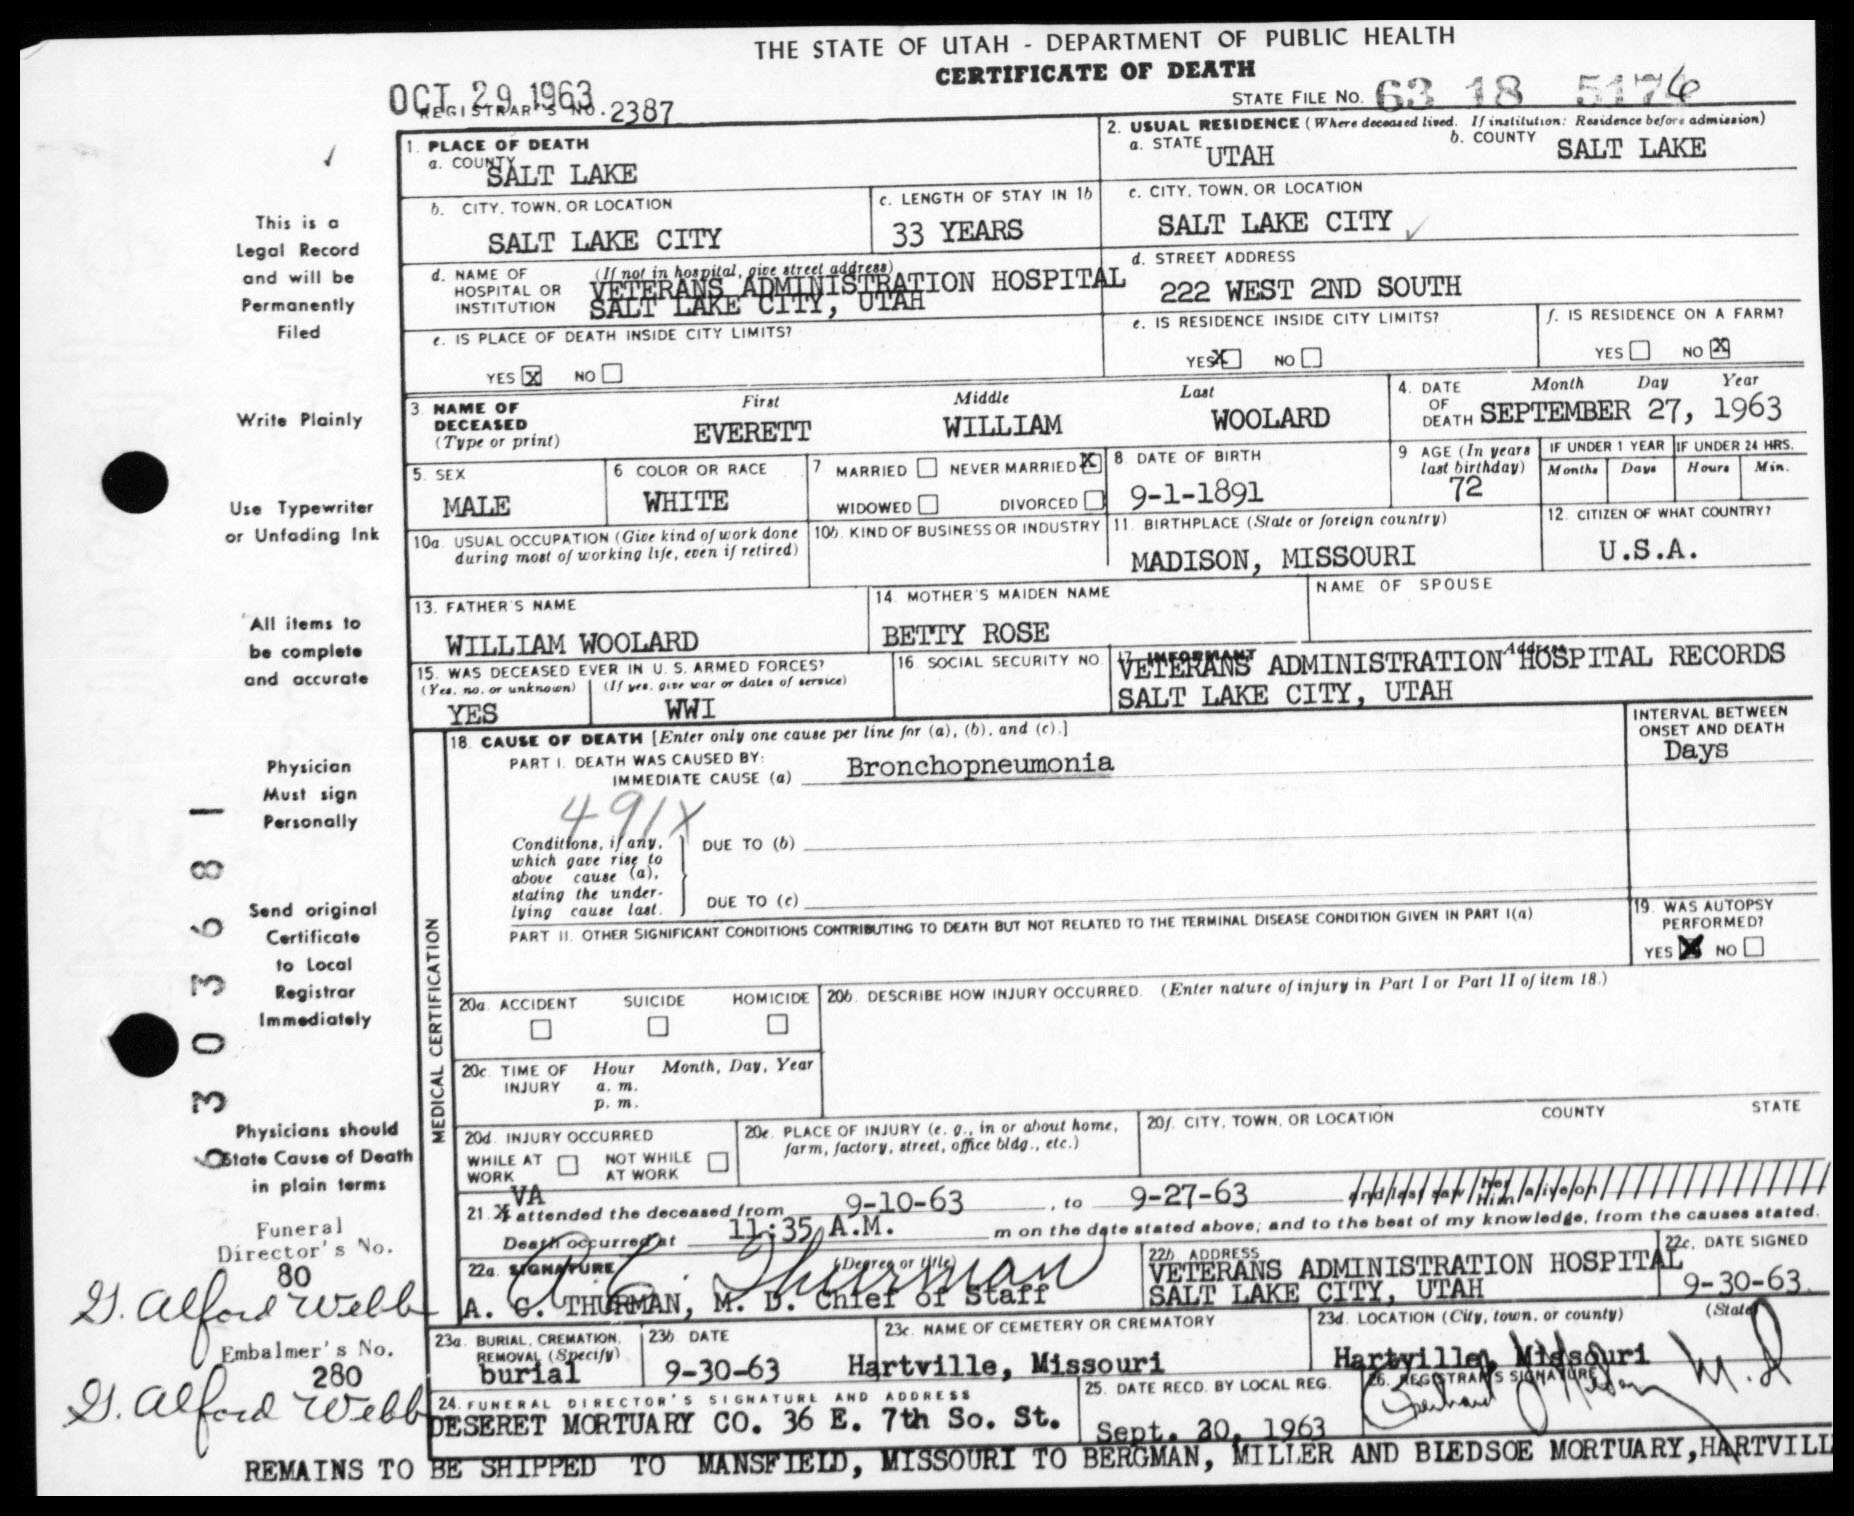 THE STATE OF UTAH - DEPARTMENT OF PUBLIC HEALTH
CERTIFICATE OF DEATH
OCT 29 1963
REGISTRAR'S NO. 2387
STATE FILE NO. 63 18 5176
1. PLACE OF DEATH
a. COUNTY
SALT LAKE
2. USUAL RESIDENCE (Where deceased lived. If institution: Residence before admission)
a. STATE UTAH b. COUNTY SALT LAKE
b. CITY, TOWN, OR LOCATION
SALT LAKE CITY
c. LENGTH OF STAY IN 1b
33 YEARS
c. CITY, TOWN, OR LOCATION
SALT LAKE CITY
d. NAME OF HOSPITAL OR INSTITUTION (If not in hospital, give street address)
VETERANS ADMINISTRATION HOSPITAL
SALT LAKE CITY, UTAH
d. STREET ADDRESS
222 WEST 2ND SOUTH
e. IS PLACE OF DEATH INSIDE CITY LIMITS?
YES X NO
e. IS RESIDENCE INSIDE CITY LIMITS?
YES X NO
f. IS RESIDENCE ON A FARM?
YES NO X
3. NAME OF DECEASED (Type or print)
First Middle Last
EVERETT WILLIAM WOOLARD
4. DATE OF DEATH Month Day Year
SEPTEMBER 27, 1963
5. SEX
MALE
6 COLOR OR RACE
WHITE
7 MARRIED NEVER MARRIED X
WIDOWED DIVORCED
8 DATE OF BIRTH
9-1-1891
9 AGE (In years last birthday)
72
IF UNDER 1 YEAR IF UNDER 24 HRS.
Months Days Hours Min.
10a. USUAL OCCUPATION (Give kind of work done during most of working life, even if retired)
10b. KIND OF BUSINESS OR INDUSTRY
11. BIRTHPLACE (State or foreign country)
MADISON, MISSOURI
12. CITIZEN OF WHAT COUNTRY?
U.S.A.
13. FATHER'S NAME
WILLIAM WOOLARD
14. MOTHER'S MAIDEN NAME
BETTY ROSE
NAME OF SPOUSE
15. WAS DECEASED EVER IN U. S. ARMED FORCES?
(Yes, no, or unknown) (If yes, give war or dates of service)
YES WWI
16. SOCIAL SECURITY NO.
17. INFORMANT Address
VETERANS ADMINISTRATION HOSPITAL RECORDS
SALT LAKE CITY, UTAH
MEDICAL CERTIFICATION
18. CAUSE OF DEATH [Enter only one cause per line for (a), (b), and (c).]
PART I. DEATH WAS CAUSED BY:
IMMEDIATE CAUSE (a) Bronchopneumonia
INTERVAL BETWEEN ONSET AND DEATH
Days
491X
Conditions, if any, which gave rise to above cause (a), stating the underlying cause last.
DUE TO (b)
DUE TO (c)
PART II. OTHER SIGNIFICANT CONDITIONS CONTRIBUTING TO DEATH BUT NOT RELATED TO THE TERMINAL DISEASE CONDITION GIVEN IN PART I(a)
19. WAS AUTOPSY PERFORMED?
YES X NO
20a. ACCIDENT SUICIDE HOMICIDE
20b. DESCRIBE HOW INJURY OCCURRED. (Enter nature of injury in Part I or Part II of item 18.)
20c. TIME OF INJURY Hour Month, Day, Year
a. m.
p. m.
20d. INJURY OCCURRED
WHILE AT WORK NOT WHILE AT WORK
20e. PLACE OF INJURY (e. g., in or about home, farm, factory, street, office bldg., etc.)
20f. CITY, TOWN, OR LOCATION COUNTY STATE
VA
21. I attended the deceased from 9-10-63, to 9-27-63 and last saw her him alive on
Death occurred at 11:35 A.M. m on the date stated above; and to the best of my knowledge, from the causes stated.
22a. SIGNATURE (Degree or title)
A. C. Thurman
A. C. THURMAN, M. D. Chief of Staff
22b. ADDRESS
VETERANS ADMINISTRATION HOSPITAL
SALT LAKE CITY, UTAH
22c. DATE SIGNED
9-30-63
23a. BURIAL, CREMATION, REMOVAL (Specify)
burial
23b. DATE
9-30-63
23c. NAME OF CEMETERY OR CREMATORY
Hartville, Missouri
23d. LOCATION (City, town, or county) (State)
Hartville, Missouri
24. FUNERAL DIRECTOR'S SIGNATURE AND ADDRESS
DESERET MORTUARY CO. 36 E. 7th So. St.
25. DATE RECD. BY LOCAL REG.
Sept. 30, 1963
26. REGISTRAR'S SIGNATURE
M.D.
REMAINS TO BE SHIPPED TO MANSFIELD, MISSOURI TO BERGMAN, MILLER AND BLEDSOE MORTUARY, HARTVILL
This is a
Legal Record
and will be
Permanently
Filed
Write Plainly
Use Typewriter
or Unfading Ink
All items to
be complete
and accurate
Physician
Must sign
Personally
Send original
Certificate
to Local
Registrar
Immediately
Physicians should
State Cause of Death
in plain terms
Funeral
Director's No.
80
G. Alford Webb
Embalmer's No.
280
G. Alford Webb
6303681